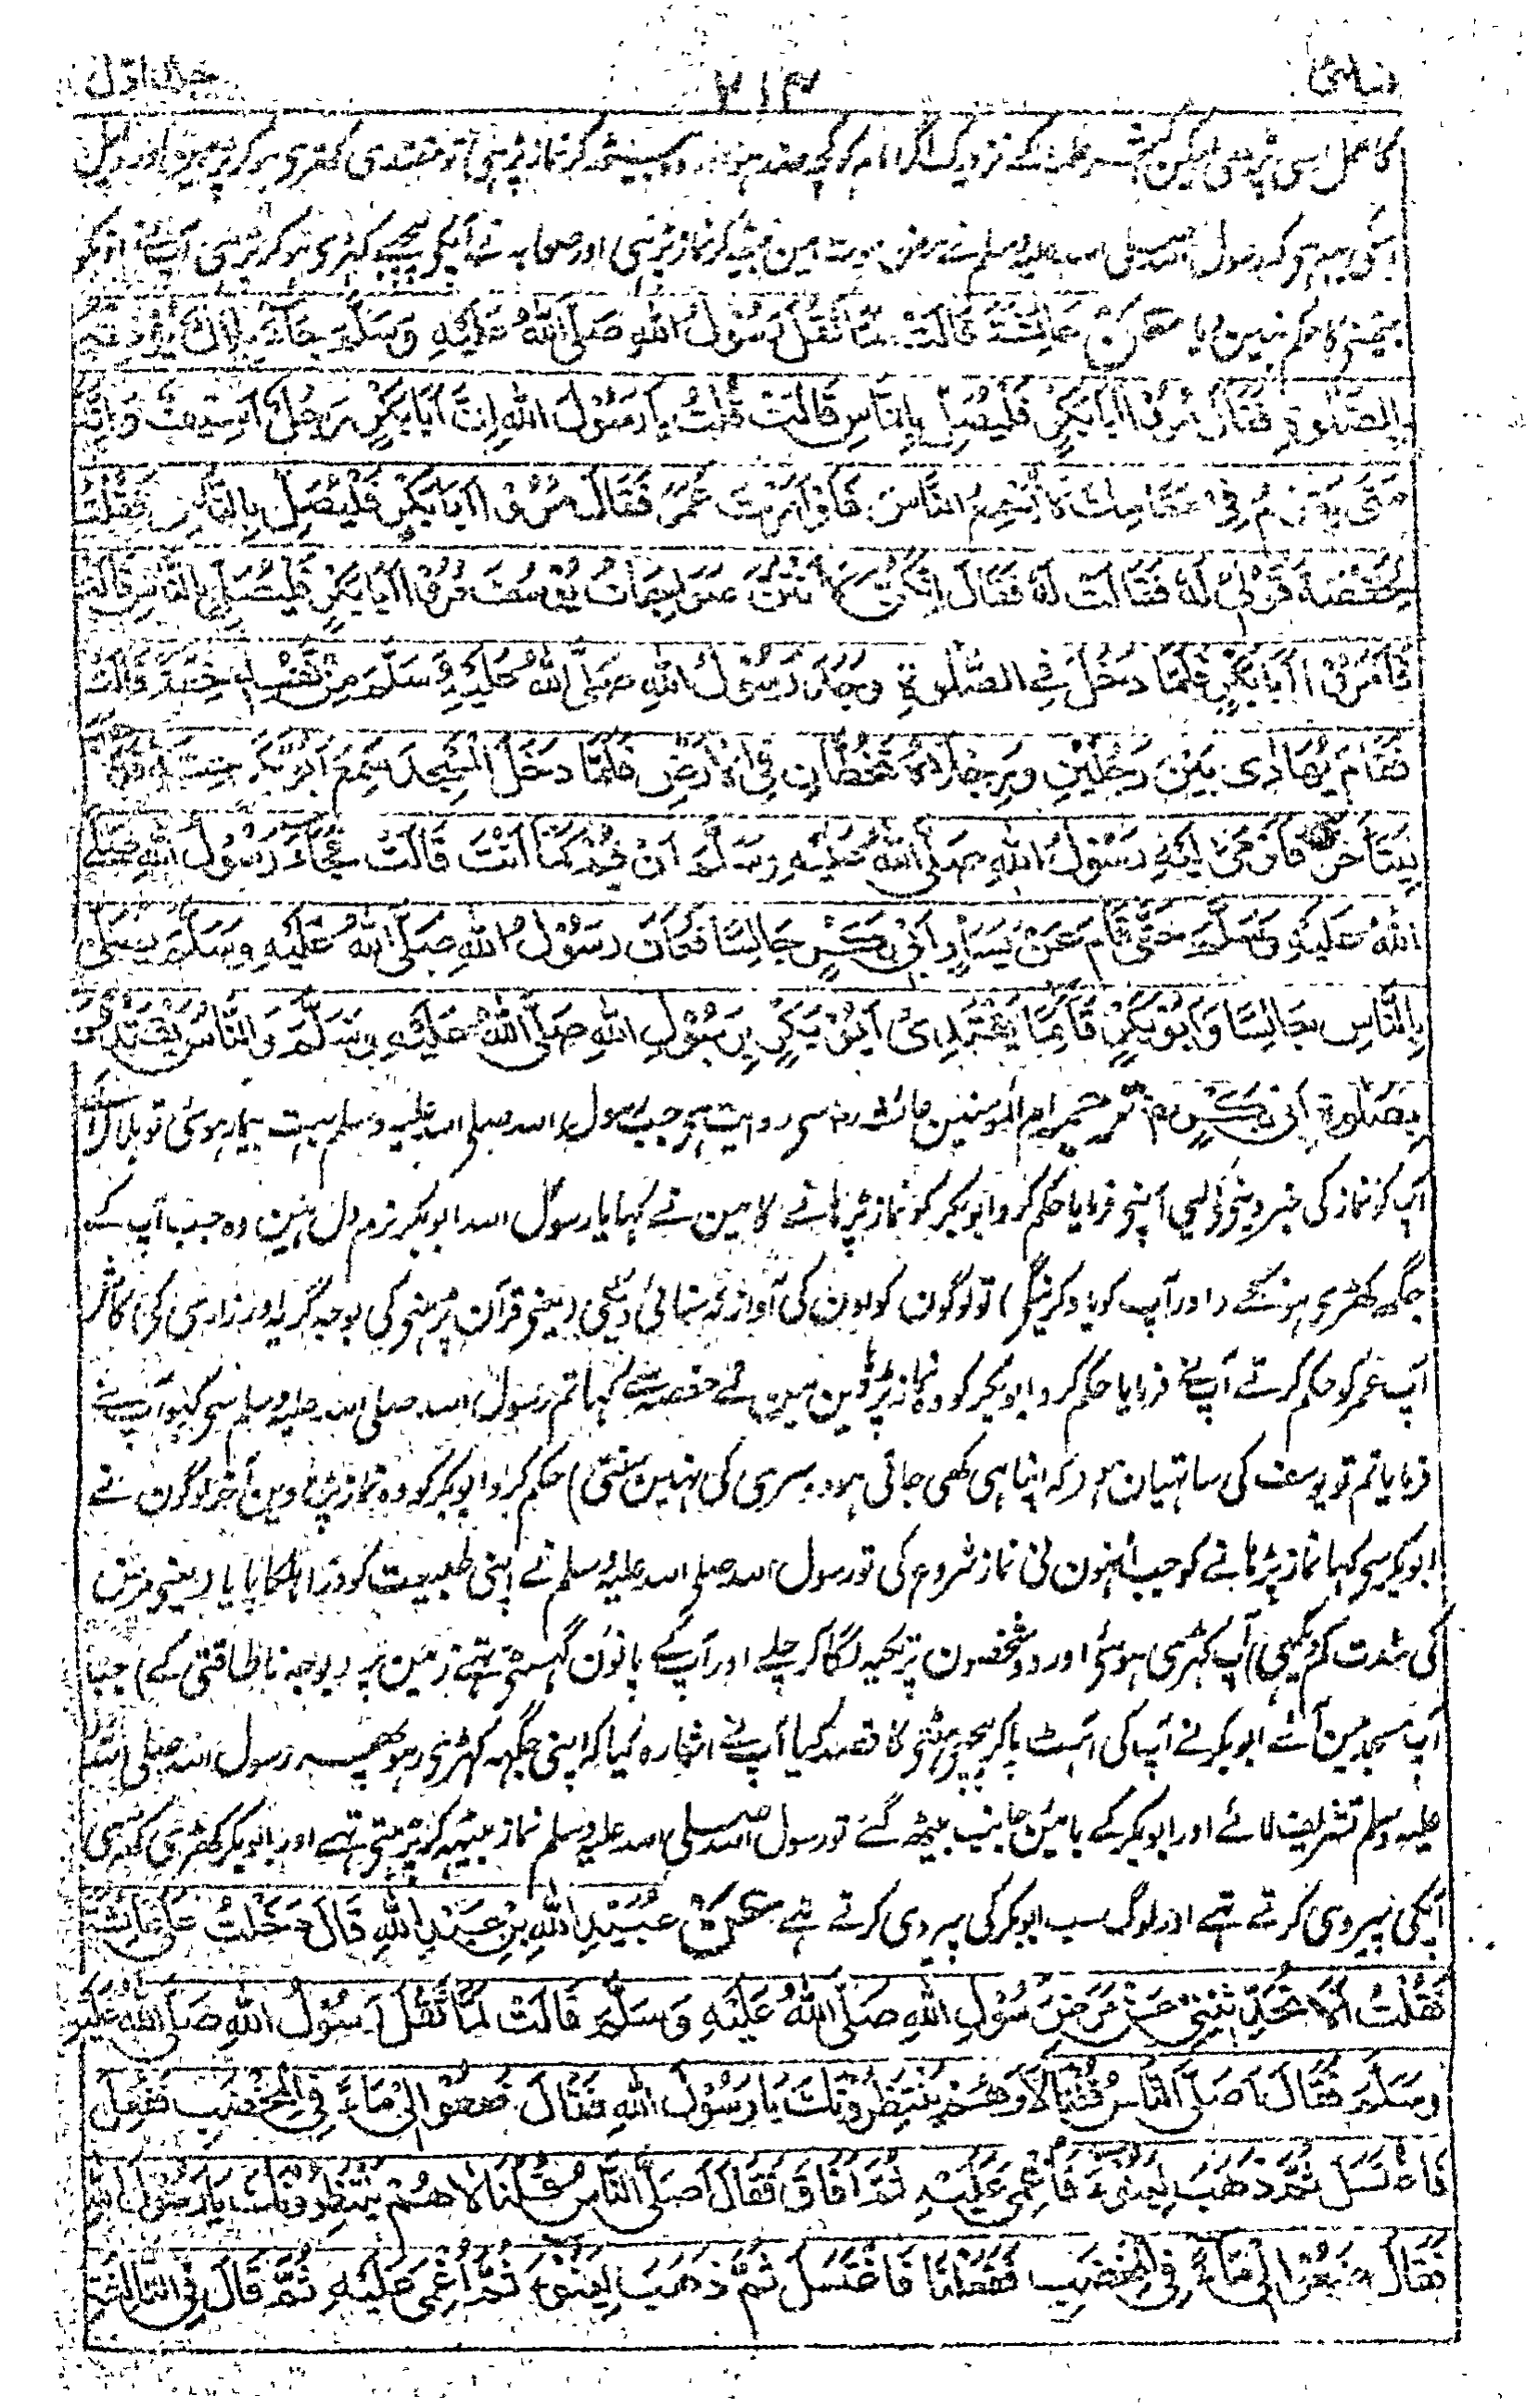 نسائی ۲۱۳ جلد اول
کا عمل اسی پر ہی لیکن اکثر علما کے نزدیک اگر امام کو کچھ عذر ہو اور وہ بیٹھ کر نماز پڑہی تو مقتدی کھڑی ہو کر پڑہین اور دلیل
اسکی یہہ ہی کہ رسول اللہ صلی اللہ علیہ وسلم نے مرض موت مین بیٹھ کر نماز پڑہی اور صحابہ نے آپکی پیچہے کہڑی ہو کر پڑہی آپنے انکو
بیٹہنی کا حکم نہین دیا عَنْ عَائِشَةَ قَالَتْ لَمَّا ثَقُلَ رَسُوْلُ اللهِ صَلَّى اللهُ عَلَيْهِ وَسَلَّمَ جَاءَ بِلَالٌ يُؤْذِنُهُ
بِالصَّلٰوةِ فَقَالَ مُرُوْا اَبَا بَكْرٍ فَلْيُصَلِّ بِالنَّاسِ قَالَتْ قُلْتُ يَا رَسُوْلَ اللهِ اِنَّ اَبَا بَكْرٍ رَجُلٌ اَسِيْفٌ وَاِنَّهُ
مَتٰى يَقُوْمُ فِيْ مَقَامِكَ لَا يُسْمِعُ النَّاسَ فَلَوْ اَمَرْتَ عُمَرَ فَقَالَ مُرُوْا اَبَا بَكْرٍ فَلْيُصَلِّ بِالنَّاسِ فَقُلْتُ
لِحَفْصَةَ قُوْلِيْ لَهُ فَقَالَتْ لَهُ فَقَالَ اِنَّكُنَّ لَاَنْتُنَّ صَوَاحِبَاتُ يُوْسُفَ مُرُوْا اَبَا بَكْرٍ فَلْيُصَلِّ بِالنَّاسِ قَالَتْ
فَاَمَرُوْا اَبَا بَكْرٍ فَلَمَّا دَخَلَ فِي الصَّلٰوةِ وَجَدَ رَسُوْلُ اللهِ صَلَّى اللهُ عَلَيْهِ وَسَلَّمَ مِنْ نَفْسِهِ خِفَّةً قَالَتْ
فَقَامَ يُهَادٰى بَيْنَ رَجُلَيْنِ وَرِجْلَاهُ تَخُطَّانِ فِي الْاَرْضِ فَلَمَّا دَخَلَ الْمَسْجِدَ سَمِعَ اَبُوْ بَكْرٍ حِسَّهُ فَذَهَبَ
لِيَتَاَخَّرَ فَاَوْمٰى اِلَيْهِ رَسُوْلُ اللهِ صَلَّى اللهُ عَلَيْهِ وَسَلَّمَ اَنْ قُمْ كَمَا اَنْتَ قَالَتْ فَجَاءَ رَسُوْلُ اللهِ صَلَّى
اللهُ عَلَيْهِ وَسَلَّمَ حَتّٰى قَامَ عَنْ يَسَارِ اَبِيْ بَكْرٍ جَالِسًا فَكَانَ رَسُوْلُ اللهِ صَلَّى اللهُ عَلَيْهِ وَسَلَّمَ يُصَلِّيْ
بِالنَّاسِ جَالِسًا وَاَبُوْ بَكْرٍ قَائِمًا يَقْتَدِيْ اَبُوْ بَكْرٍ بِرَسُوْلِ اللهِ صَلَّى اللهُ عَلَيْهِ وَسَلَّمَ وَالنَّاسُ يَقْتَدُوْنَ
بِصَلٰوةِ اَبِيْ بَكْرٍ ترجمہ ام المومنین عائشہ رضہ سی روایت ہی جب رسول اللہ صلی اللہ علیہ وسلم بہت بیمار ہوئی تو بلال آئے
آپ کو نماز کی خبر دینی کو لیی آپنی فرمایا حکم کرو ابوبکر کو نماز پڑہانے کا مین نے کہا یا رسول اللہ ابوبکر نرم دل ہین وہ جب آپ کے
جگہہ کھڑی ہونگے (اور آپ کو یاد کرینگی) تو لوگون کو اون کی آواز نہ سنائی دیگی (یعنی قرآن پڑہنی کی بوجہ گریہ اور زاری کی) کاش
آپ عمر کو حکم کرتے آپنے فرمایا حکم کرو ابوبکر کو وہ نماز پڑہاوین مین نے حفصہ سے کہا تم رسول اللہ صلی اللہ علیہ وسلم سی کہو آپ نے
فرمایا تم تو یوسف کی ساتہیان ہو (کہ اپنا ہی کہی جاتی ہو دوسری کی نہین سنتی) حکم کرو ابوبکر کو وہ نماز پڑہاوین آخر لوگون نے
ابوبکر سی کہا نماز پڑہانے کو جب اُنہون نی نماز شروع کی تو رسول اللہ صلی اللہ علیہ وسلم نے اپنی طبیعت کو ذرا ہلکا پایا (یعنی مرض
کی شدت کم دیکہی) آپ کہڑی ہوئی اور دو شخصون پر تکیہ لگا کر چلے اور آپ کے پانؤن گہسٹتی تہے زمین پر (بوجہ ناطاقتی کے) جب
آپ مسجد مین آئے ابوبکر نے آپ کی آہٹ پا کر پیچہی ہٹنی کا قصد کیا آپ نے اشارہ کیا کہ اپنی جگہہ کہڑی رہو پھر رسول اللہ صلی اللہ
علیہ وسلم تشریف لائے اور ابوبکر کے بائین جانب بیٹھ گئے تو رسول اللہ صلی اللہ علیہ وسلم نماز بیٹہہ کر پڑہتی تہے اور ابوبکر کھڑی کھڑی
آپکی پیروی کرتے تہے اور لوگ سب ابوبکر کی پیروی کرتے تہے عَنْ عُبَيْدِ اللهِ بْنِ عَبْدِ اللهِ قَالَ دَخَلْتُ عَلٰى عَائِشَةَ
فَقُلْتُ اَلَا تُحَدِّثِيْنِيْ عَنْ مَرَضِ رَسُوْلِ اللهِ صَلَّى اللهُ عَلَيْهِ وَسَلَّمَ قَالَتْ لَمَّا ثَقُلَ رَسُوْلُ اللهِ صَلَّى اللهُ عَلَيْهِ
وَسَلَّمَ فَقَالَ اَصَلَّى النَّاسُ قُلْنَا لَا وَهُمْ يَنْتَظِرُوْنَكَ يَا رَسُوْلَ اللهِ فَقَالَ ضَعُوْا لِيْ مَاءً فِي الْمِخْضَبِ فَفَعَلْنَا
فَاغْتَسَلَ ثُمَّ ذَهَبَ لِيَنُوْءَ فَاُغْمِيَ عَلَيْهِ ثُمَّ اَفَاقَ فَقَالَ اَصَلَّى النَّاسُ قُلْنَا لَا هُمْ يَنْتَظِرُوْنَكَ يَا رَسُوْلَ اللهِ
فَقَالَ ضَعُوْا لِيْ مَاءً فِي الْمِخْضَبِ فَفَعَلْنَا فَاغْتَسَلَ ثُمَّ ذَهَبَ لِيَنُوْءَ ثُمَّ اُغْمِيَ عَلَيْهِ ثُمَّ قَالَ فِي الثَّالِثَةِ